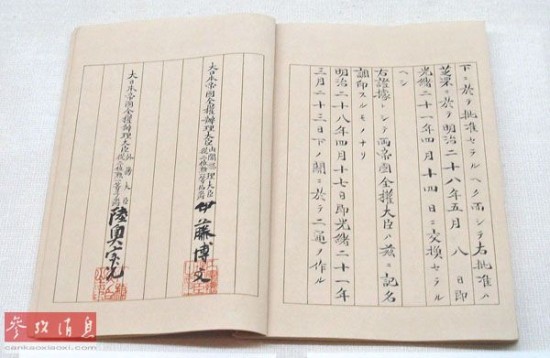 下ニ於テ批准セラルヘク而シテ右批准ハ
芝罘ニ於テ明治二十八年五月八日即
光緒二十一年四月十四日ニ交換セラル
ヘシ
右證據トシテ兩帝國全權大臣ハ茲ニ記名
調印スルモノナリ
明治二十八年四月十七日即光緒二十一年
三月二十三日下ノ關ニ於テ二通ヲ作ル
大日本帝國全權辦理大臣
伊藤博文
大日本帝國全權辦理大臣
陸奥宗光
参考消息
cankaoxiaoxi.com